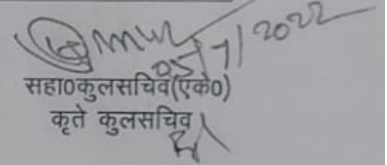 05/7/2022
सहा0कुलसचिव(एके0)
कृते कुलसचिव